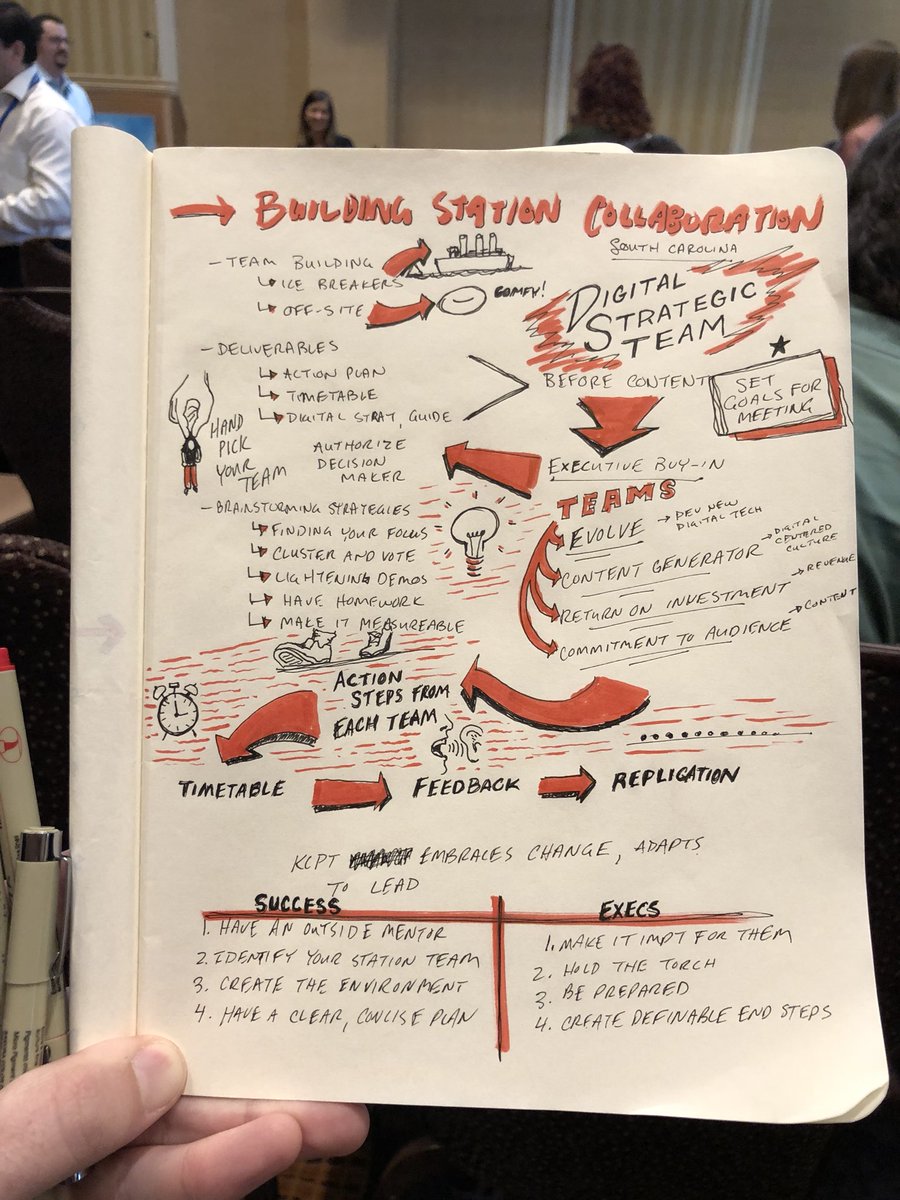 BUILDING STATION COLLABORATION
SOUTH CAROLINA
- TEAM BUILDING
ICE BREAKERS
OFF-SITE
COMFY!
DIGITAL
STRATEGIC
TEAM
- DELIVERABLES
ACTION PLAN
TIMETABLE
DIGITAL STRAT, GUIDE
BEFORE CONTENT
SET
GOALS FOR
MEETING
HAND
PICK
YOUR
TEAM
AUTHORIZE
DECISION
MAKER
EXECUTIVE BUY-IN
- BRAINSTORMING STRATEGIES
FINDING YOUR FOCUS
CLUSTER AND VOTE
LIGHTENING DEMOS
HAVE HOMEWORK
MAKE IT MEASUREABLE
TEAMS
EVOLVE → DEV NEW
DIGITAL TECH
CONTENT GENERATOR → DIGITAL
CENTERED
CULTURE
RETURN ON INVESTMENT → REVENUE
COMMITMENT TO AUDIENCE → CONTENT
ACTION
STEPS FROM
EACH TEAM
TIMETABLE
FEEDBACK
REPLICATION
KCPT EMBRACES CHANGE, ADAPTS
TO LEAD
SUCCESS
1. HAVE AN OUTSIDE MENTOR
2. IDENTIFY YOUR STATION TEAM
3. CREATE THE ENVIRONMENT
4. HAVE A CLEAR, CONCISE PLAN
EXECS
1. MAKE IT IMPT FOR THEM
2. HOLD THE TORCH
3. BE PREPARED
4. CREATE DEFINABLE END STEPS